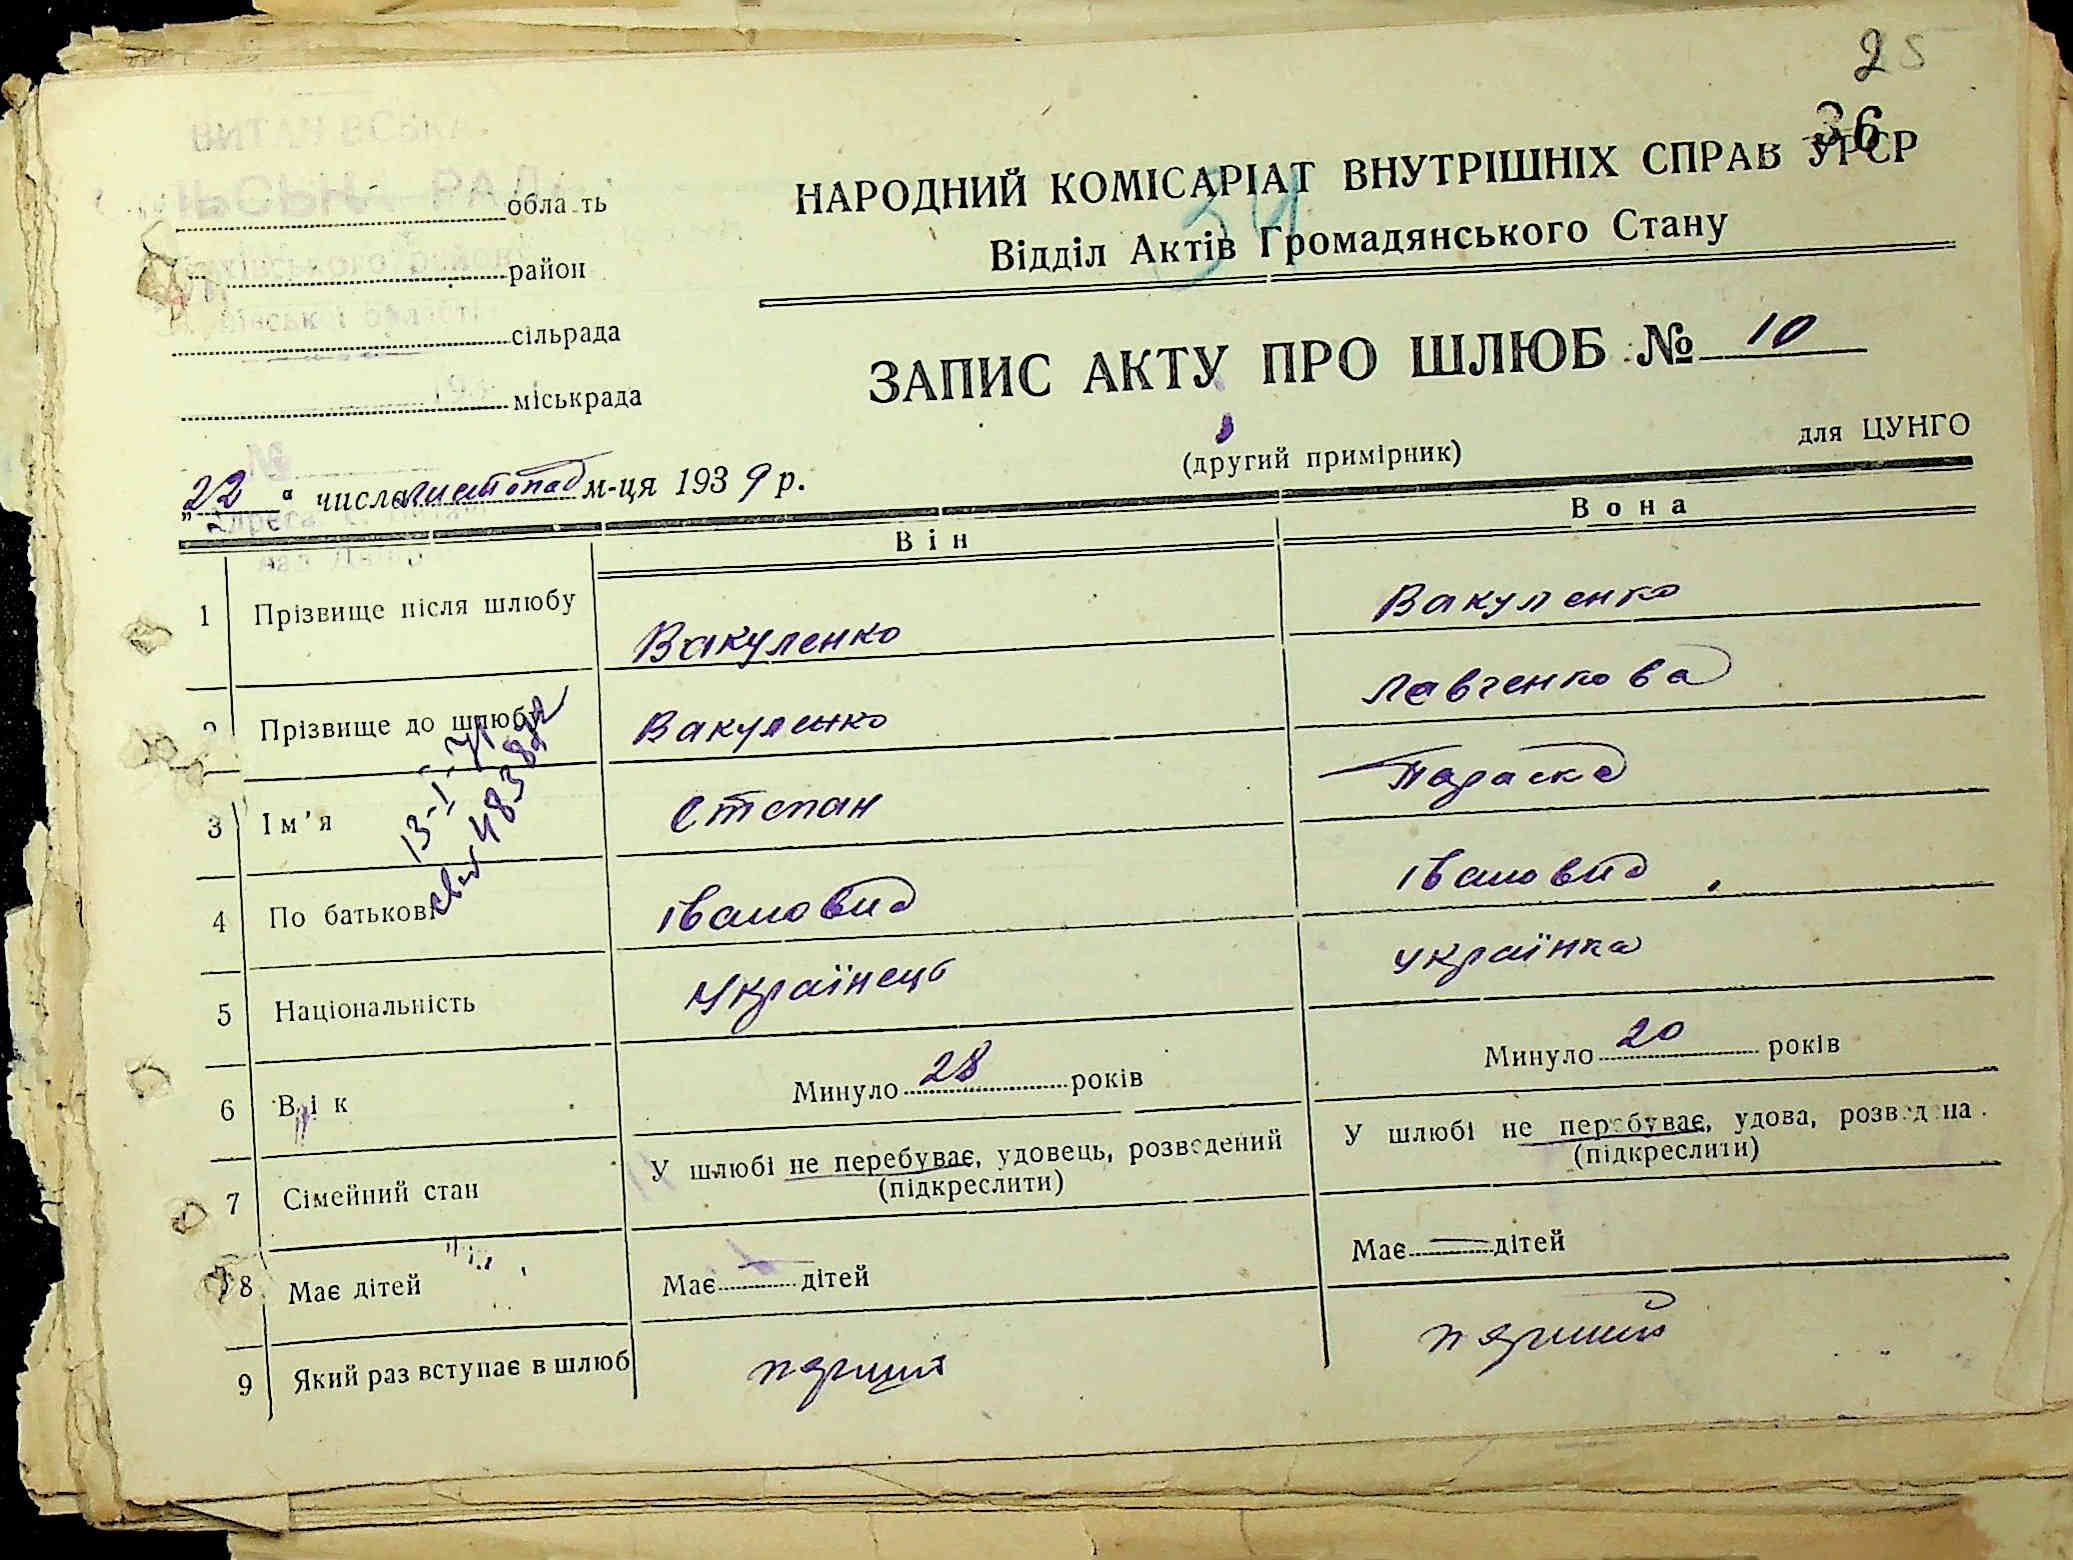 25
36
34
ВИТА
ЬСЬК РАДА
область
район
сільрада
міськрада
НАРОДНИЙ КОМІСАРІАТ ВНУТРІШНІХ СПРАВ УРСР
Відділ Актів Громадянського Стану
ЗАПИС АКТУ ПРО ШЛЮБ № 10
(другий примірник)
для ЦУНГО
„22" числа листопад м-ця 1939 р.
Він
Вона
1 Прізвище після шлюбу Вакуленко Вакуленко
2 Прізвище до шлюбу Вакуленко Левченкова
3 Ім'я Степан Параска
4 По батькові Івановид Івановид
13-І-71
5 Національність Українець Українка
6 Вік Минуло 28 років Минуло 20 років
7 Сімейний стан У шлюбі не перебуває, удовець, розведений У шлюбі не перебуває, удова, розведена
(підкреслити) (підкреслити)
8 Має дітей Має — дітей Має — дітей
9 Який раз вступає в шлюб